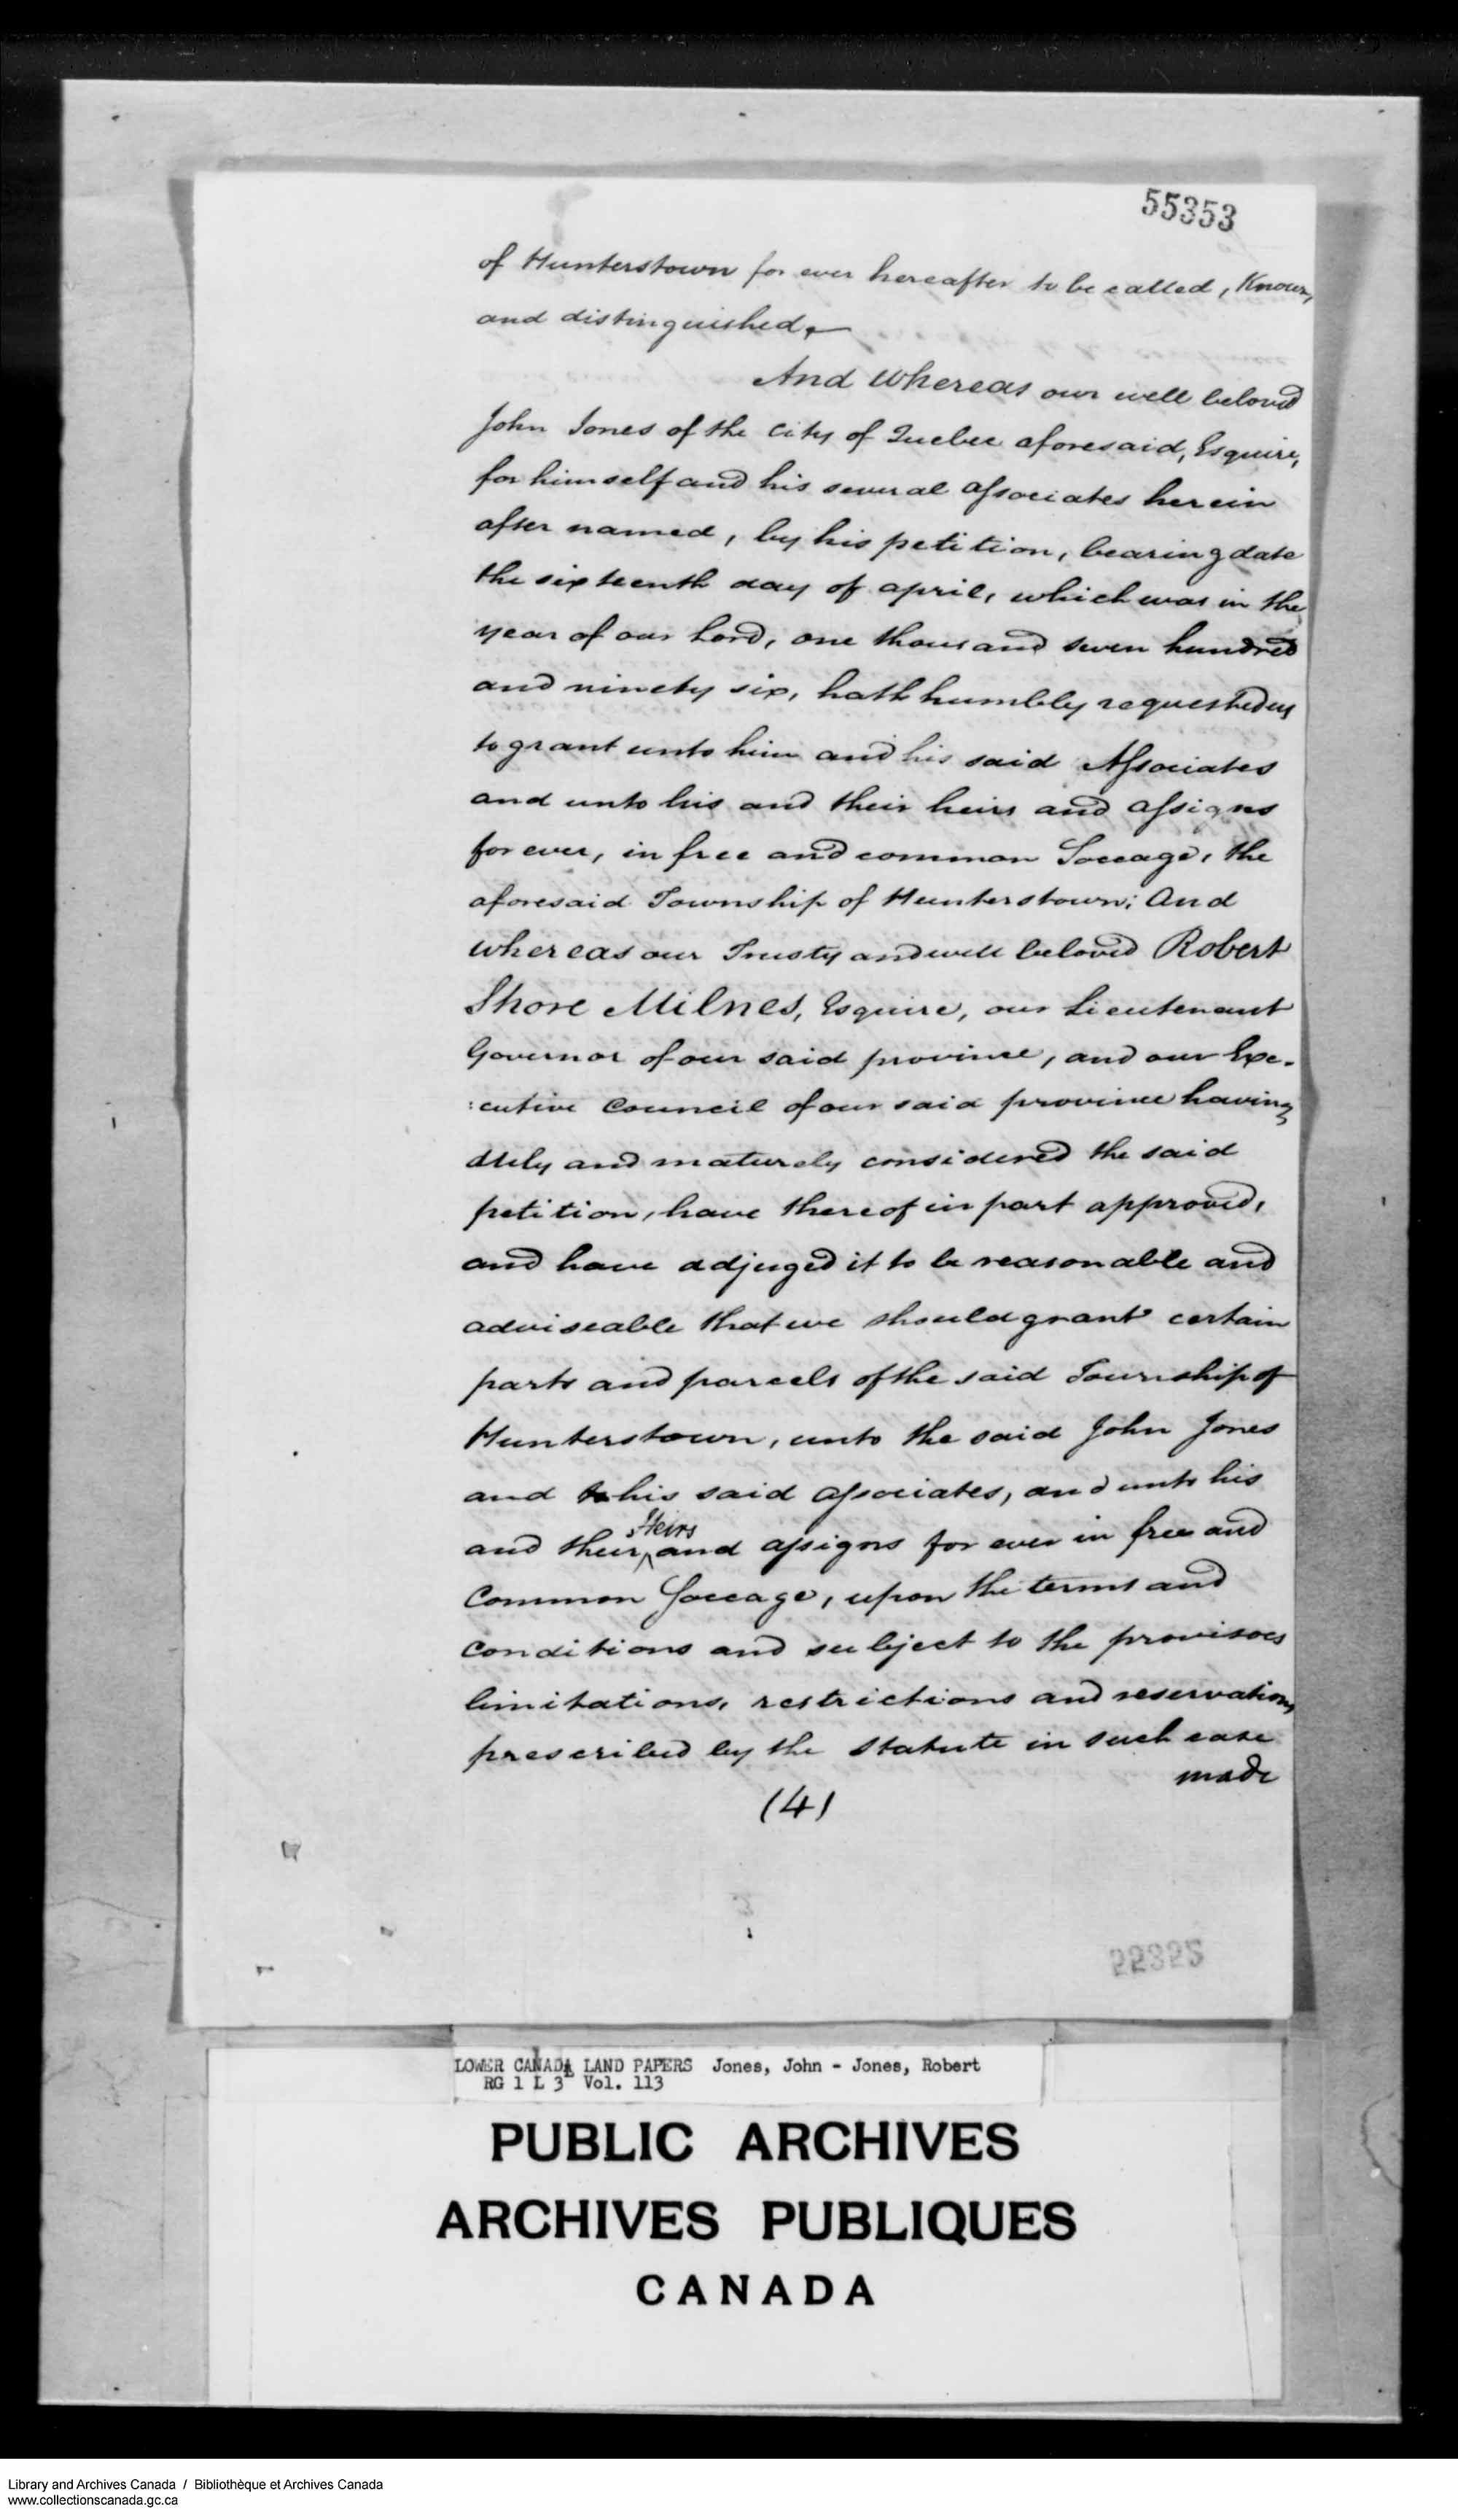 55353
of Hunterstown for ever hereafter to be called, Known,
and distinguished,
And Whereas our well beloved
John Jones of the City of Quebec aforesaid, Esquire,
for himself and his several associates herein
after named, by his petition, bearing date
the sixteenth day of april, which was in the
year of our Lord, one thousand seven hundred
and ninety six, hath humbly requested us
to grant unto him and his said Associates
and unto his and their heirs and assigns
for ever, in free and common Soccage, the
aforesaid Township of Hunterstown; And
whereas our Trusty and well beloved Robert
Shore Milnes, Esquire, our Lieutenant
Governor of our said province, and our Exe-
:cutive Council of our said province having
duly and maturely considered the said
petition, have thereof in part approved,
and have adjuged it to be reasonable and
adviseable that we should grant certain
parts and parcels of the said Township of
Hunterstown, unto the said John Jones
and to his said associates, and unto his
and their Heirs and assigns for ever in free and
Common Soccage, upon the terms and
conditions and subject to the provisoes
limitations, restrictions and reservations,
prescribed by the Statute in such case
made
(4)
55352
LOWER CANADA LAND PAPERS Jones, John - Jones, Robert
RG 1 L 3 Vol. 113
PUBLIC ARCHIVES
ARCHIVES PUBLIQUES
CANADA
Library and Archives Canada / Bibliothèque et Archives Canada
www.collectionscanada.gc.ca